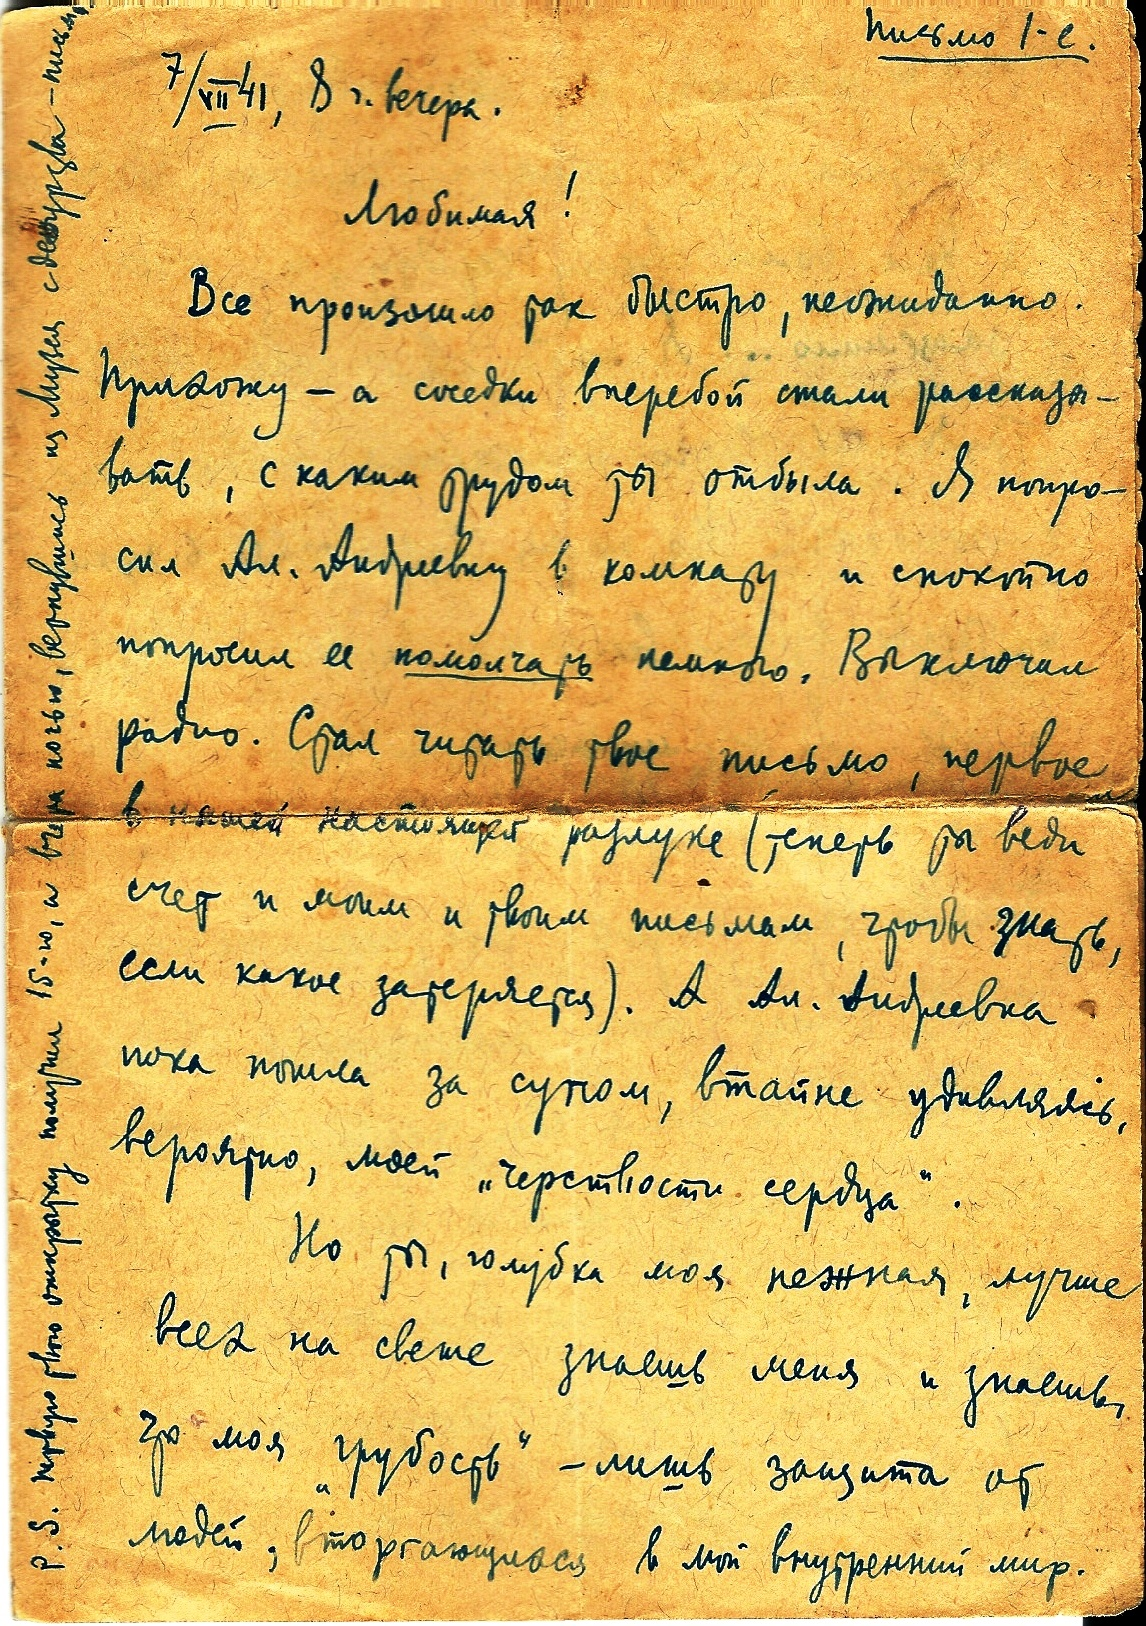 Письмо 1-е.
7/VII 41, 8 г. вечера.
Любимая!
Все произошло так быстро, неожиданно.
Прихожу – а соседки вперебой стали рассказы-
вать, с каким трудом ты отбыла. Я попро-
сил Ал. Андреевну в комнату и спокойно
попросил ее помолчать немного. Выключил
радио. Стал читать твое письмо, первое
в нашей настоящей разлуке (теперь ты веди
счет и моим и твоим письмам, чтобы знать,
если какое затеряется). А Ал. Андреевна
пока пошла за супом, втайне удивляясь,
вероятно, моей „черствости сердца".
Но ты, голубка моя нежная, лучше
всех на свете знаешь меня и знаешь,
что моя „грубость" – лишь защита от
людей, вторгающихся в мой внутренний мир.
P.S. первую твою открытку получил 15-го, а вчера ночью, вернувшись из Музея с дежурства – письмо